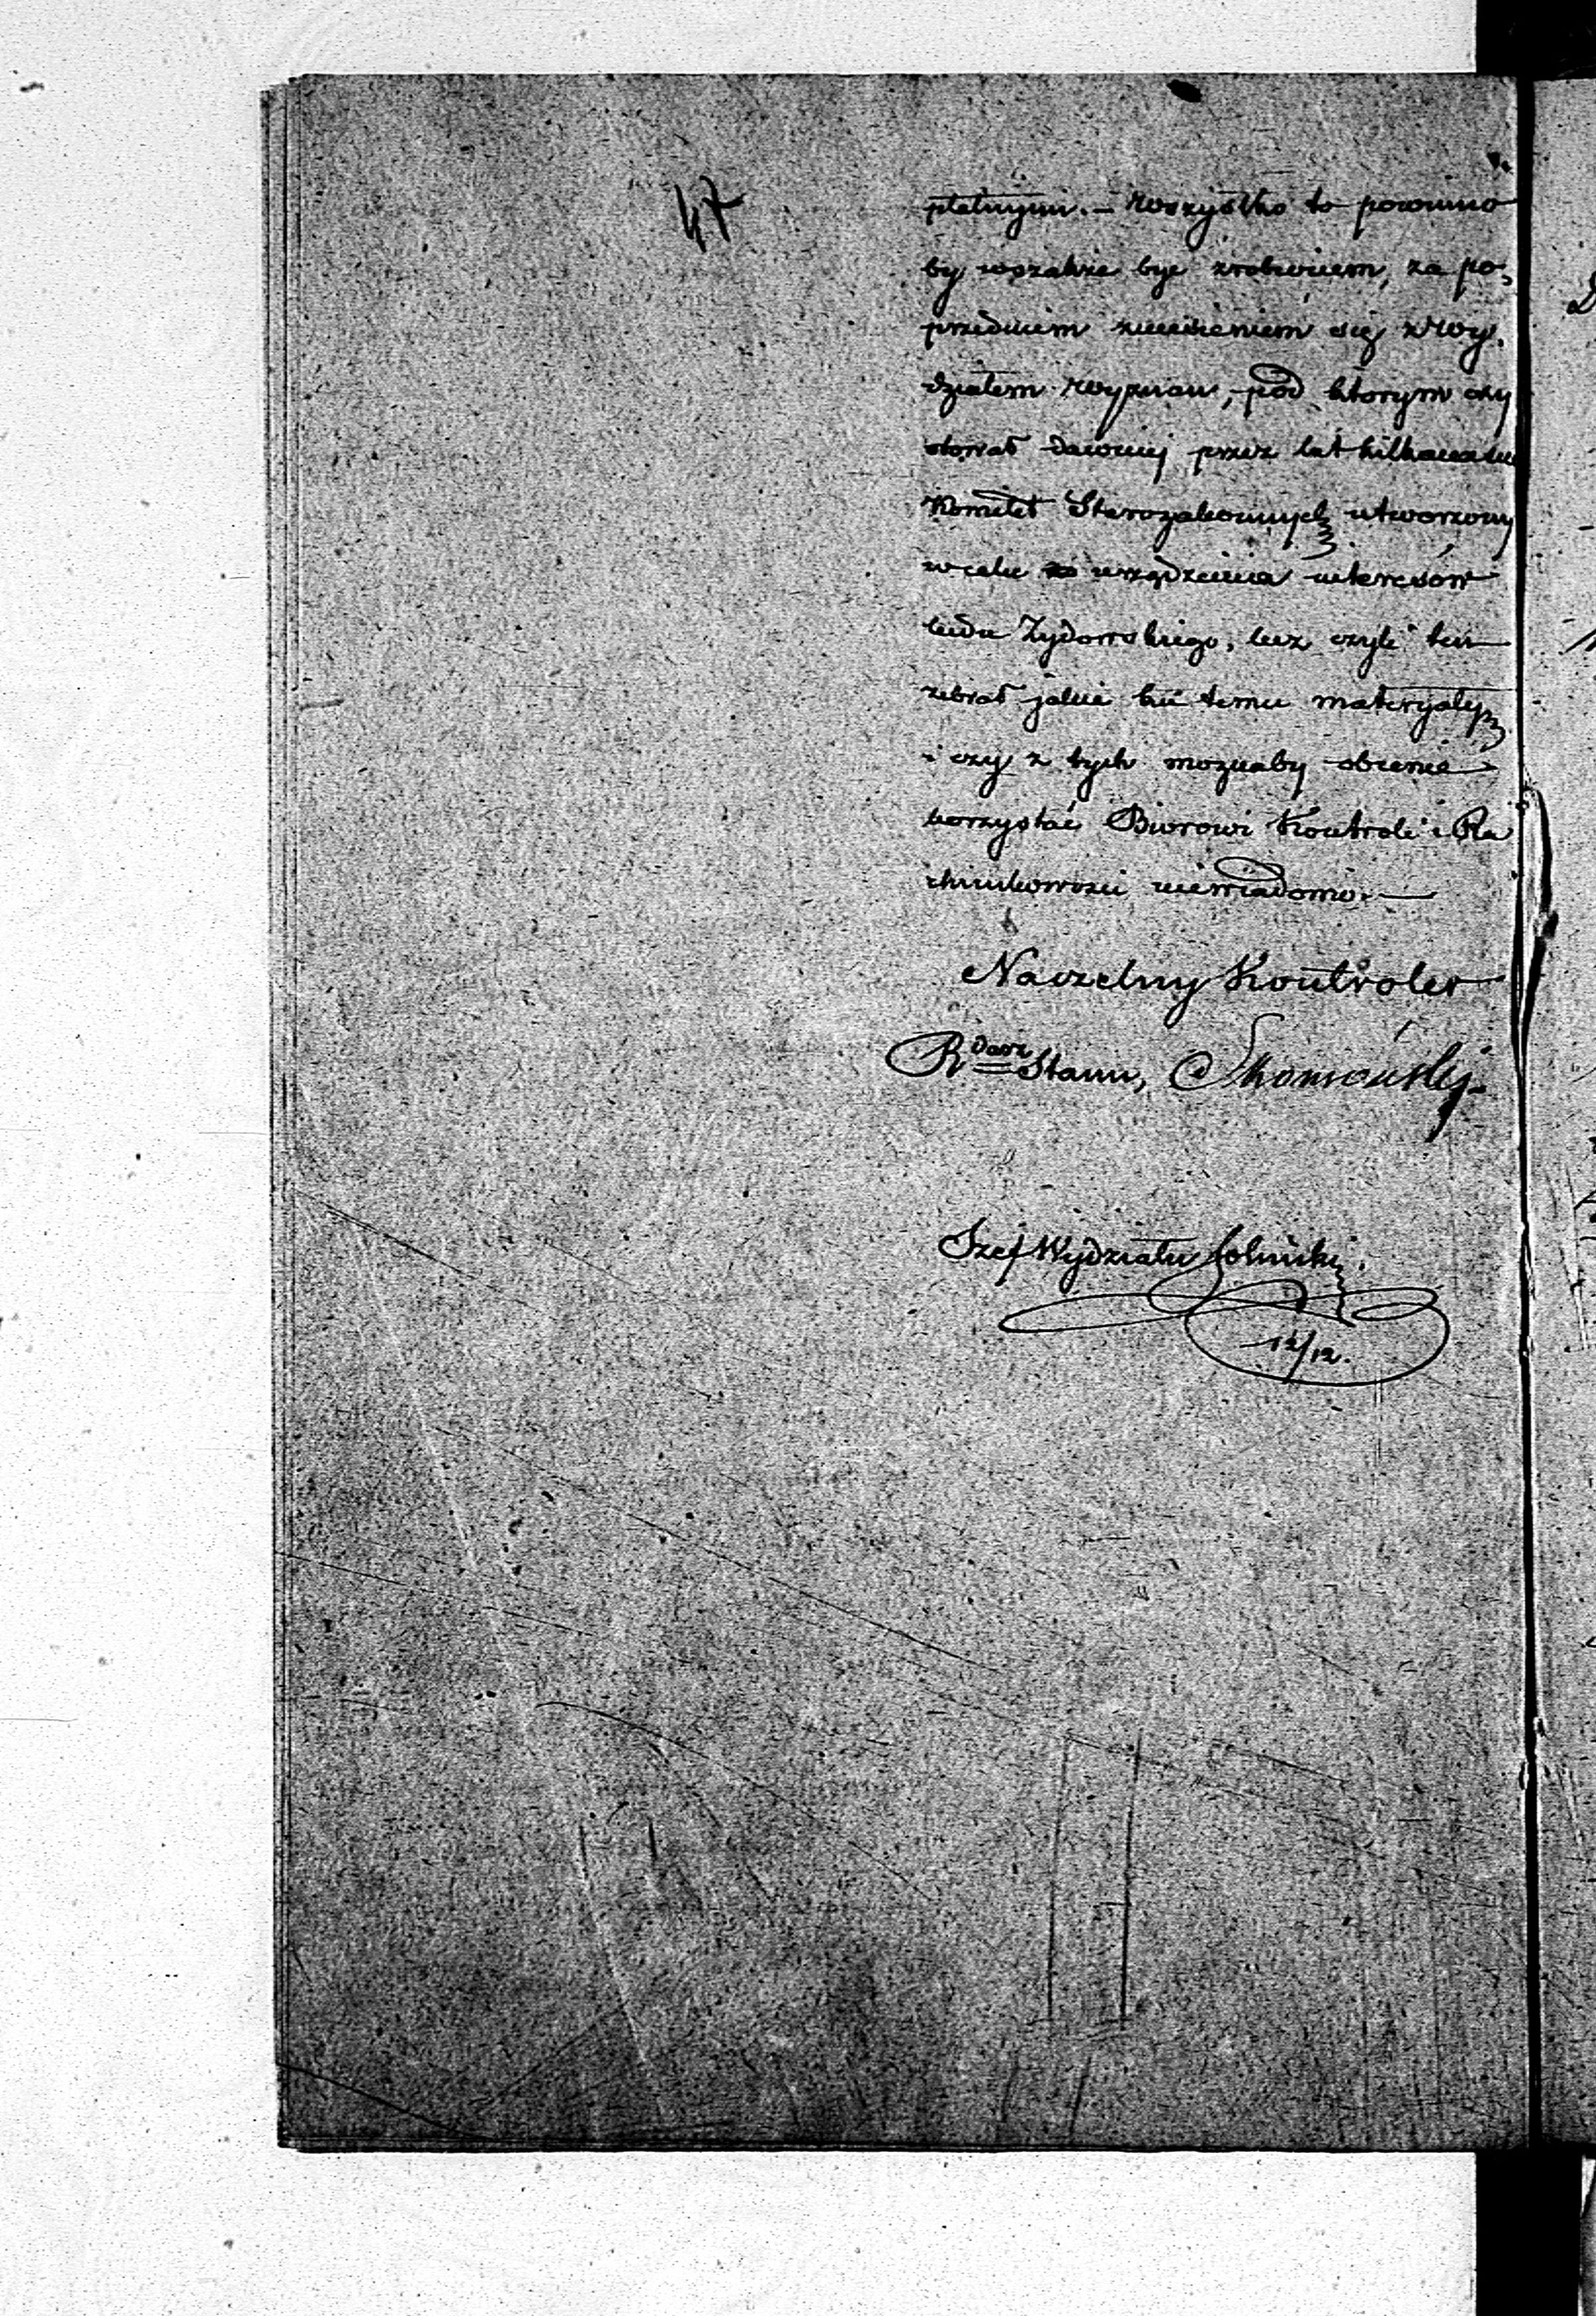 47
płatnymi. — Wszystko to powinno
by wszakże być zrobionem, za po,
przedniem zniesieniem się z Wy.
działem Wyznan, pod ktorym exy
stował dawniej przez lat kilkanaście
Komitet Starozakonnych utworzony
w celu urządzenia interesów
ludu Żydowskiego, lecz czyli ten
zebrał jakie ku temu materyały
i czy z tych możnaby obecnie
korzystać Biórowi Kontroli i Ra
chunkowości niewiadomo. —
Naczelny Kontroler
R darz Stanu,
Szef Wydziału
12/12.